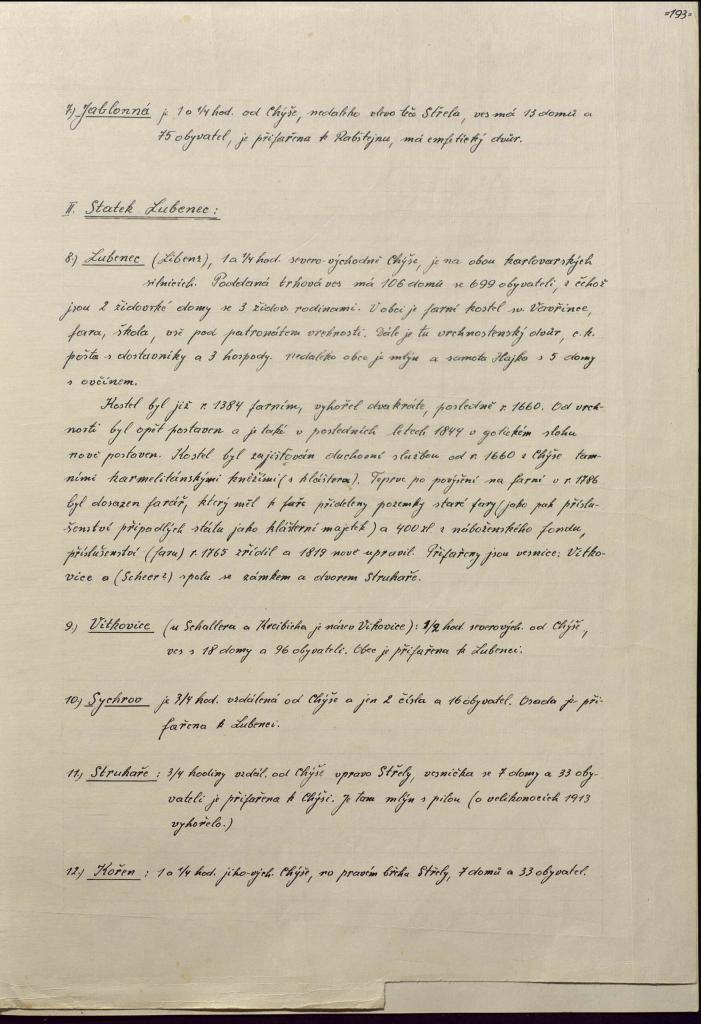 =193=
7.) Jablonná je 1 a 1/4 hod. od Chýše, nedaleko vlevo teče Střela, ves má 13 domů a
75 obyvatel, je přifařena k Rabštejnu, má emfetický dvůr.
II. Statek Lubenec:
8.) Lubenec (Libenz), 1 a 1/4 hod. severo-východně Chýše, je na obou karlovarských
silnicích. Poddaná trhová ves má 106 domů se 699 obyvateli, z čehož
jsou 2 židovské domy se 3 židov. rodinami. V obci je farní kostel sv. Vavřince,
fara, škola, vše pod patronátem vrchnosti. Dále je tu vrchnostenský dvůr, c. k.
pošta s dostavníky a 3 hospody. nedaleko obce je mlýn a samota Hajko s 5 domy
s ovčínem.
Kostel byl již r. 1384 farním, vyhořel dvakráte, posledně r. 1660. Od vrch-
nosti byl opět postaven a je také v posledních letech 1844 v gotickém slohu
nově postaven. Kostel byl zajišťován duchovní službou od r. 1660 z Chýše tam-
ními karmelitánskými kněžími (s kláštera). Teprve po povýšení na farní v r. 1786
byl dosazen farář, který měl k faře přiděleny pozemky staré fary (jako pak příslu-
šenství připadlých státu jako klášterní majetek) a 400 zl z náboženského fondu,
příslušenství (faru) r. 1765 zřídil a 1819 nově upravil. Přifařeny jsou vesnice: Vítko-
vice a (Scheerz) spolu se zámkem a dvorem Struhaře.
9.) Vítkovice (u Schallera a Kreibicha je název Vikovice): 1/2 hod. severových. od Chýše,
ves s 18 domy a 96 obyvateli. Obec je přifařena k Lubenci.
10.) Sychrov je 3/4 hod. vzdálená od Chýše a jen 2 čísla a 16 obyvatel. Osada je při-
fařena k Lubenci.
11.) Struhaře: 3/4 hodiny vzdál. od Chýše vpravo Střely, vesnička se 7 domy a 33 oby-
vateli je přifařena k Chýši. Je tam mlýn s pilou (o velikonocích 1913
vyhořelo.)
12.) Kořen: 1 a 1/4 hod. jiho-vých. Chýše, na pravém břehu Střely, 7 domů a 33 obyvatel.